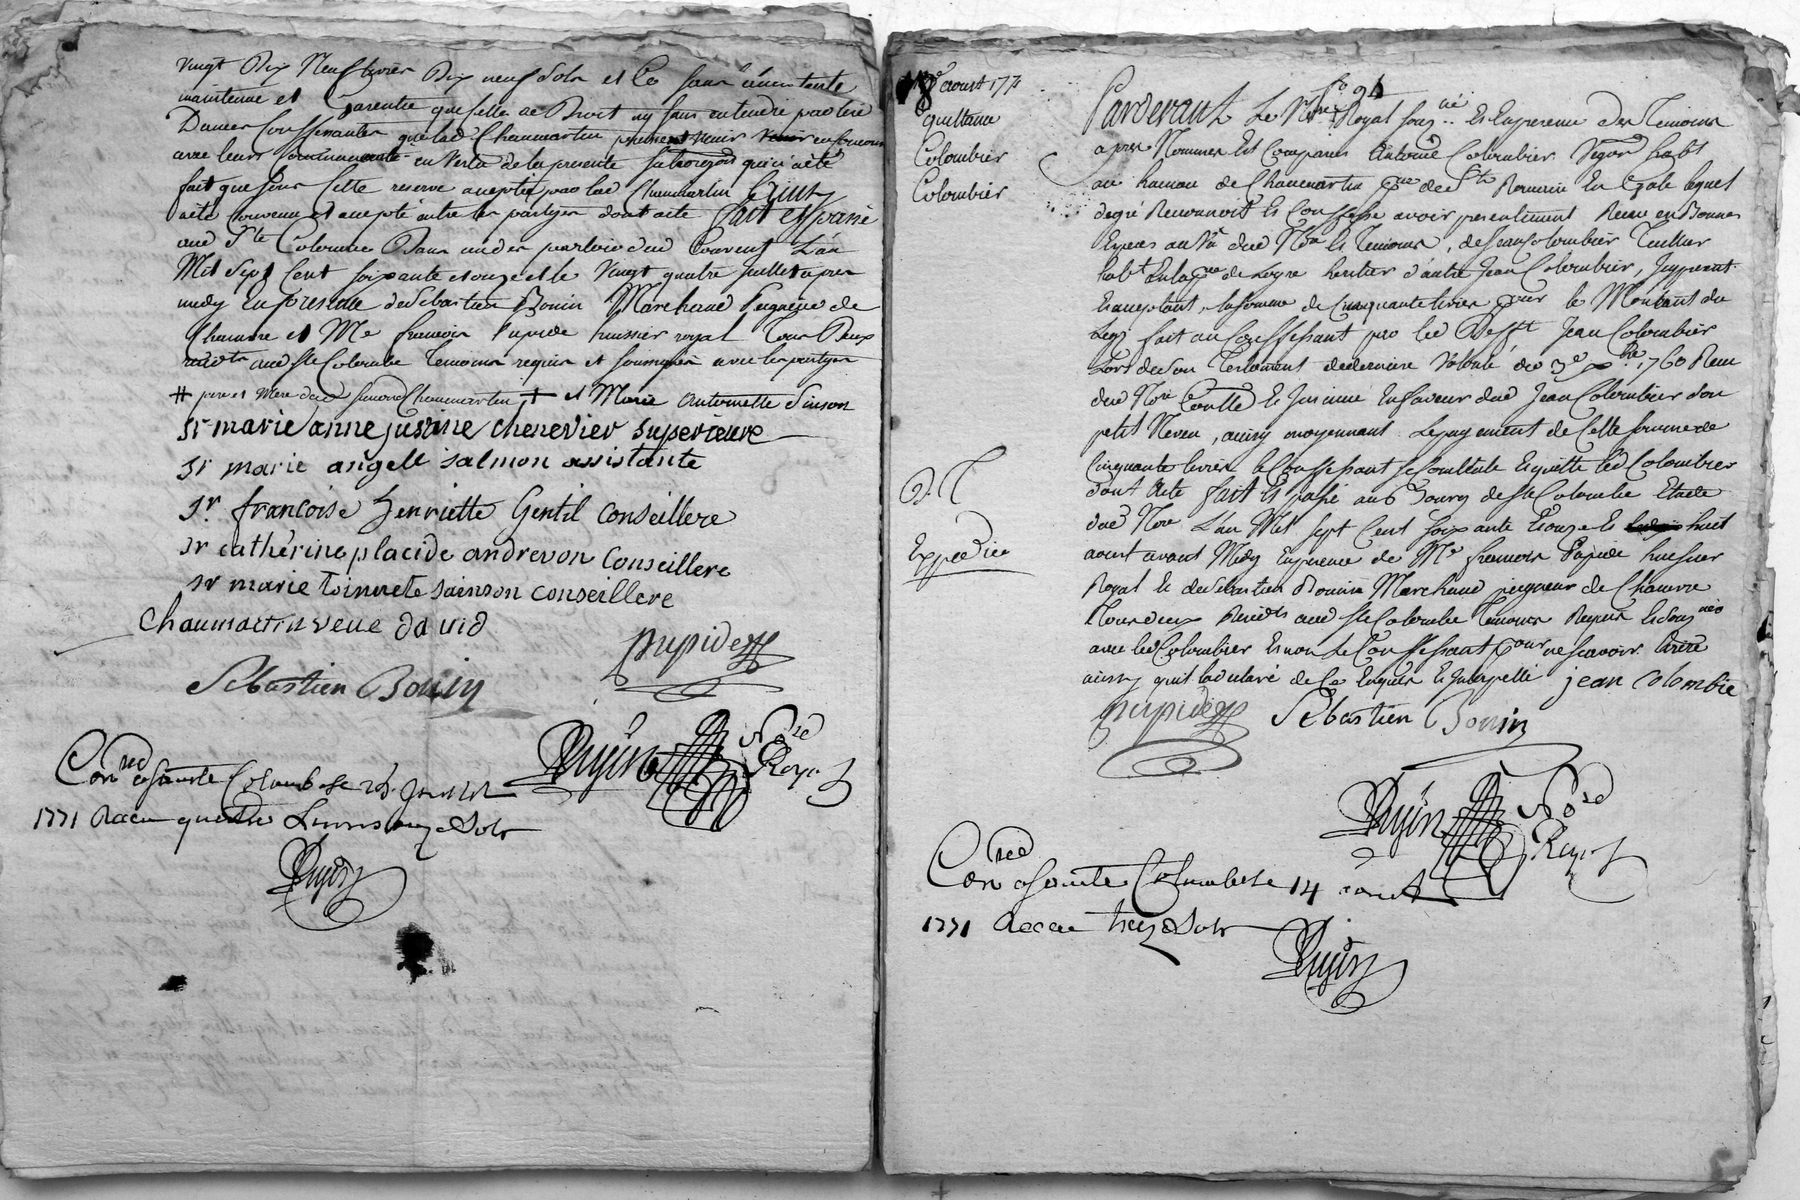 vingt Dix Neuf livres Dix neuf Sols et Ce sans
maintenue et Garentie que celle de Droit ny sans entendre par les
Dames Confessantes que lad Chaumartin puisse venir en concours
avec leurs Communauté en Vertu de la presente qui n'a eté
fait que sous Cette reserve aceptée par lad Chaumartin
eté Convenu et accepté entre les partyes dont acte fait et passé
aud Ste Colombe Dans un des parloirs dud Couvent L'an
Mil Sept Cent soixante et onze et le Vingt quatre juillet apres
midy En presence de Sebastien Bonin Marchand Peigneur de
Chanvre et Me francois Papide huissier royal Tous Deux
aud Ste Colombe Temoins requis et soussignes avec les partyes
# pere et Mere dud simond Chaumartin + et Marie Antoinette Sinson
Sr marie anne justine chenevier superieure
Sr marie angell salmon assistante
Sr francoise henriette Gentil conseillere
Sr cathérine placide andrevon Conseillere
Sr marie toinnete sainson conseillere
Chaumartin veue david
papide
Sebastien Bonin
Pugin Nore Royal
Conred a Sainte Colombe 25 Juillet
1771 Recu quatre Livres onze Sols
Pugin
8e aoust 1771
quittance
Colombier
Colombier
D. T
Expediée
fo 91
Pardevant Le Nre Royal souzné Et En presence des Temoins
apres Nommes Est Comparu Antoine Colombier Vigon habt
au hameau de Chaumartin de Ste Romain En Galle lequel
degré Reconnoit Et Confesse avoir presentement Receu en Bonnes
Especes au Vu dud Nre Et Temoins, de Jean Colombier Tuillier
habt En la de Loyre heritier d'autre Jean Colombier, Jcy present
Et aceptant, la somme de Cinquante livres pour le Montant du
Legs fait au Confessant par led Defft Jean Colombier
Lors de son Testament de derniere Volonté du 3e 1760 Receu
dud Nre Controllé Et Jnsinué En faveur dud Jean Colombier son
petit Neveu, ainsy moyennant Le payement de Cette somme de
Cinquante livres le Confessant se Contente Et quitte led Colombier
dont Acte fait Et passé au Bourg de Ste Colombe Etude
dud Nre L'an Mil sept Cent soixante Et onze Et le huit
aoust avant Midy En presence de Me francois Papide huissier
Royal Et de Sebastien Bonnin Marchand peigneur de Chanvre
Tous deux Residts aud Ste Colombe Temoins Requis Et souznes
avec led Colombier Et non le Confessant pour ne scavoir Ecrire
ainsy qu'il l'a declaré de Ce Enquis Et Jnterpellé jean colombie
papide Sebastien Bonin
Pugin Nore Royal
Conred a Sainte Colombe 14 aoust
1771 Receu treize Sols
Pugin